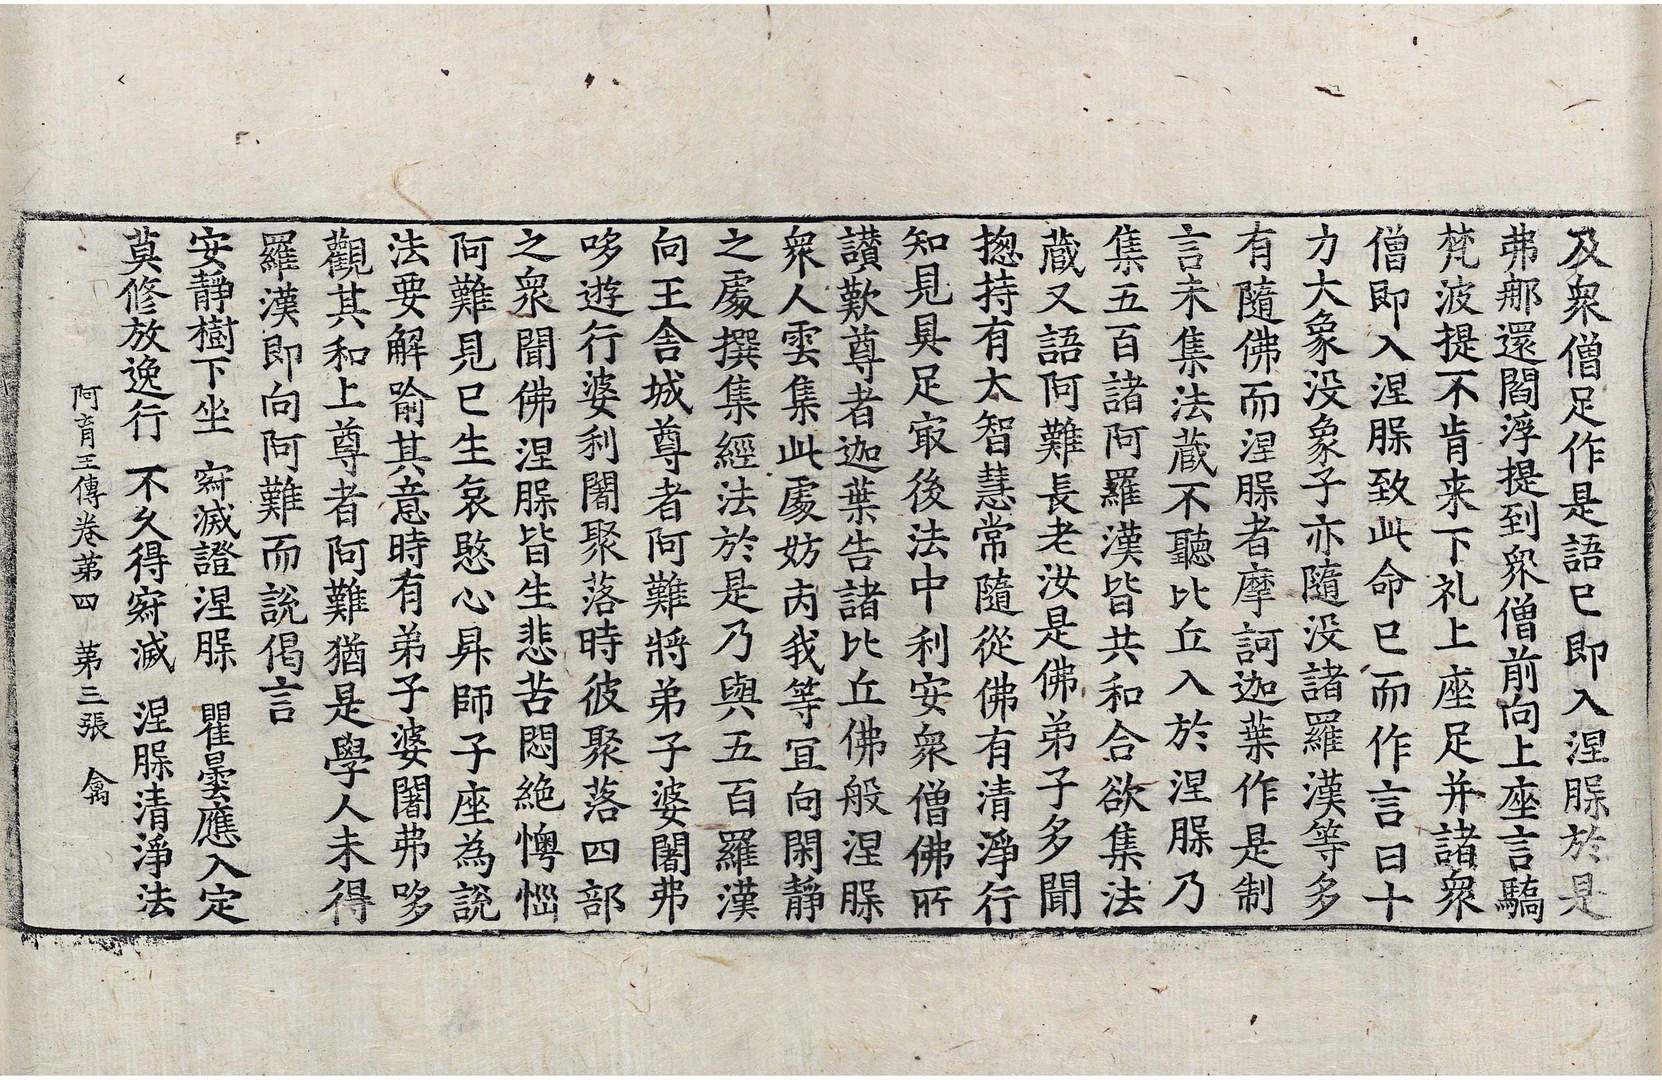 及衆僧足作是語已即入涅槃於是
弗那還閻浮提到衆僧前向上座言驕
梵波提不肯来下礼上座足并諸衆
僧即入涅槃致此命已而作言曰十
力大象没象子亦隨没諸羅漢等多
有隨佛而涅槃者摩訶迦葉作是制
言未集法藏不聽比丘入於涅槃乃
集五百諸阿羅漢皆共和合欲集法
藏又語阿難長老汝是佛弟子多聞
揔持有大智慧常隨從佛有清淨行
知見具足㝡後法中利安衆僧佛所
讃歎尊者迦葉告諸比丘佛般涅槃
衆人雲集此處妨芮我等宜向閑靜
之處撰集經法於是乃與五百羅漢
向王舍城尊者阿難將弟子婆闍弗
哆遊行婆利闍聚落時彼聚落四部
之衆聞佛涅槃皆生悲苦悶絶懊惱
阿難見已生哀愍心昇師子座為說
法要解喻其意時有弟子婆闍弗哆
觀其和上尊者阿難猶是學人未得
羅漢即向阿難而說偈言
安靜樹下坐 㝛滅證涅槃 瞿曇應入定
莫修放逸行 不久得㝛滅 涅槃清淨法
阿育王傳卷第四 第三張 禽